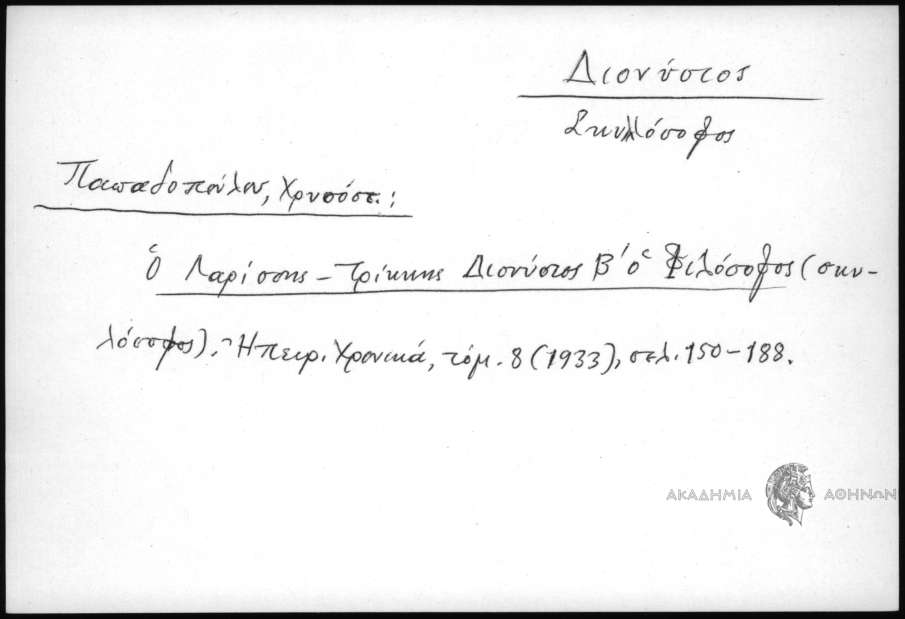 Διονύσιος
Σκυλόσοφος
Παπαδοπούλου, Χρυσόστ.:
Ὁ Λαρίσσης – Τρίκκης Διονύσιος Β' ὁ Φιλόσοφος (σκυ-
λόσοφος). Ἠπειρ. Χρονικά, τόμ. 8 (1933), σελ. 150-188.
ΑΚΑΔΗΜΙΑ ΑΘΗΝΩΝ